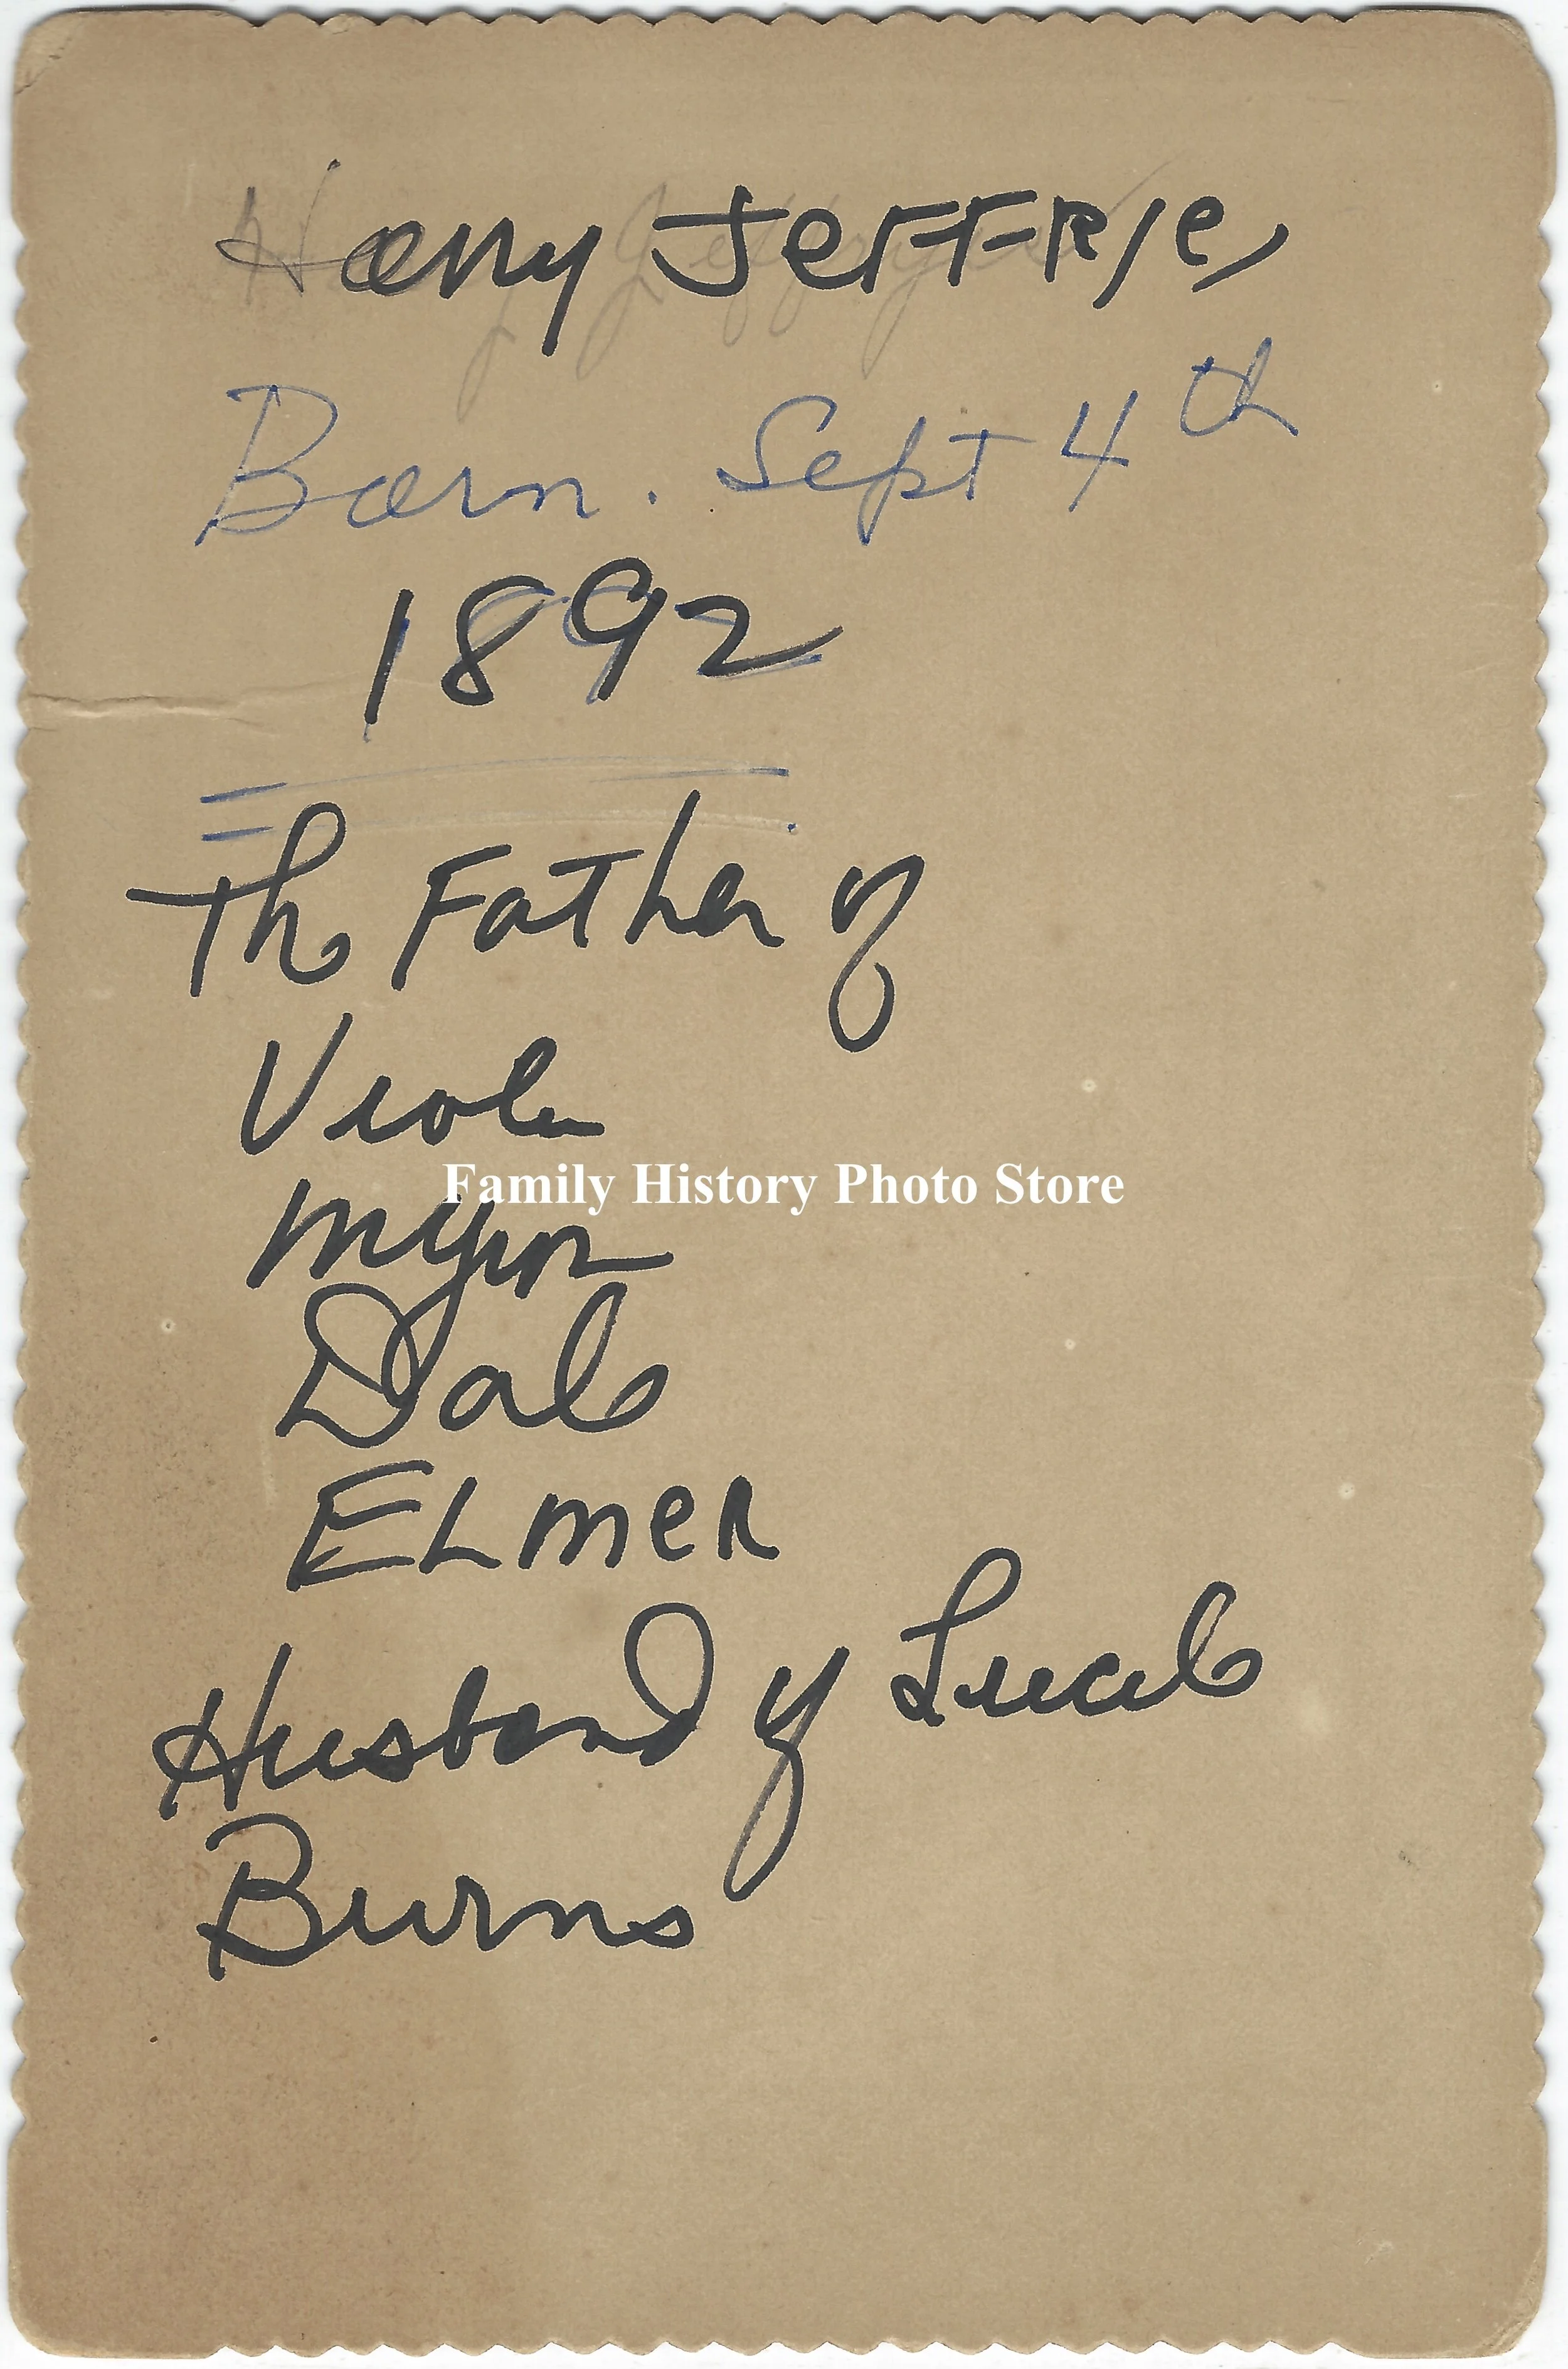 Harry Jeffries
Born. Sept 4th
1892
The Father of
Viola
Family History Photo Store
Myron
Dale
ELmeR
Husband of Lucile
Burns